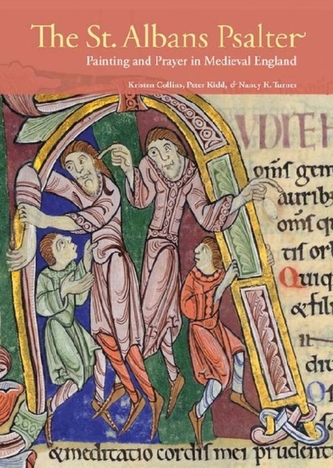 The St. Albans Psalter
Painting and Prayer in Medieval England
Kristen Collins, Peter Kidd, & Nancy K. Turner
omſ gen
aurib
omſ q
tiſ or
Qui
&fili
&meditatio cordiſ mei prudent